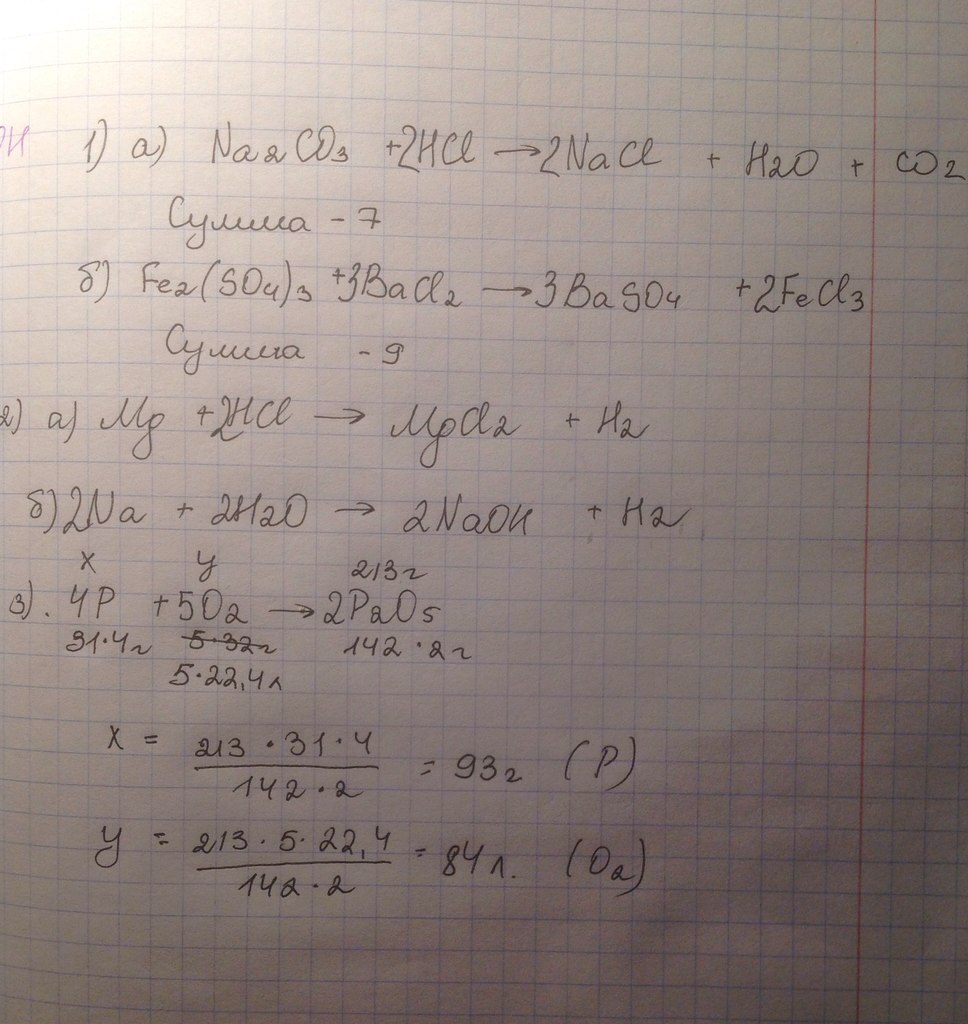 ОН
1) а) Na2CO3 +2HCl →2NaCl + H2O + CO2
Сумма - 7
б) Fe2(SO4)3 +3BaCl2 →3BaSO4 +2FeCl3
Сумма - 9
2) а) Mg +2HCl → MgCl2 + H2
б) 2Na + 2H2O → 2NaOH + H2
x y 213г
3). 4P +5O2 → 2P2O5
31·4г 5·32г 142·2г
5·22,4л
x = 213·31·4 / 142·2 = 93г (P)
y = 213·5·22,4 / 142·2 = 84л. (O2)